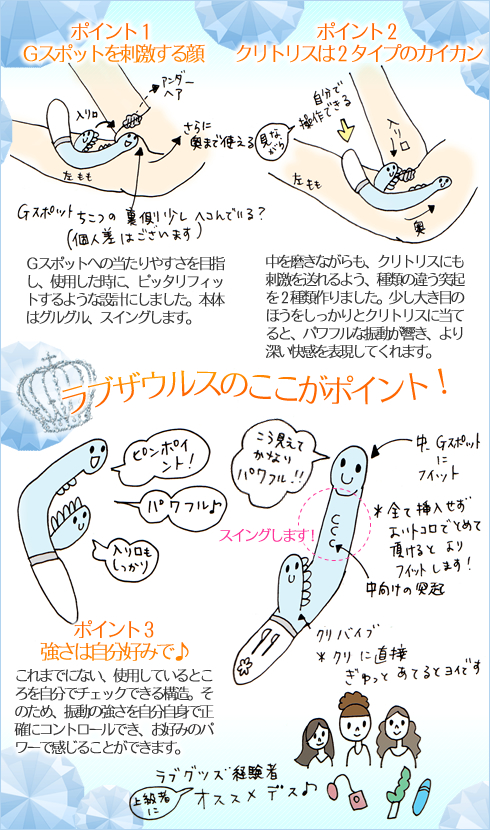 ポイント1
Gスポットを刺激する顔
アンダー
ヘア
入り口
さらに
奥まで使える
左もも
Gスポット ちこつの裏側少しヘコんでいる?
(個人差はございます)
Gスポットへの当たりやすさを目指
し、使用した時に、ピッタリフィッ
トするような設計にしました。本体
はグルグル、スイングします。
ポイント2
クリトリスは2タイプのカイカン
自分で
操作できる
見な
がら
入り口
左もも
奥
中を磨きながらも、クリトリスにも
刺激を送れるよう、種類の違う突起
を2種類作りました。少し大き目の
ほうをしっかりとクリトリスに当て
ると、パワフルな振動が響き、より
深い快感を表現してくれます。
ラブザウルスのここがポイント!
ピンポイ
ント!
パワフル♪
入り口も
しっかり
こう見えて
かなり
パワフル!!
中、Gスポット
に
フィット
スイングします!
*全て挿入せず
よいトコロでとめて
頂けると より
フィットします!
中向けの突起
クリバイブ
*クリに直接
ぎゅっと あてるとヨイです
ポイント3
強さは自分好みで♪
これまでにない、使用しているとこ
ろを自分でチェックできる構造。そ
のため、振動の強さを自分自身で正
確にコントロールでき、お好みのパ
ワーで感じることができます。
ラブグッズ経験者
上級者
に
オススメデス♪